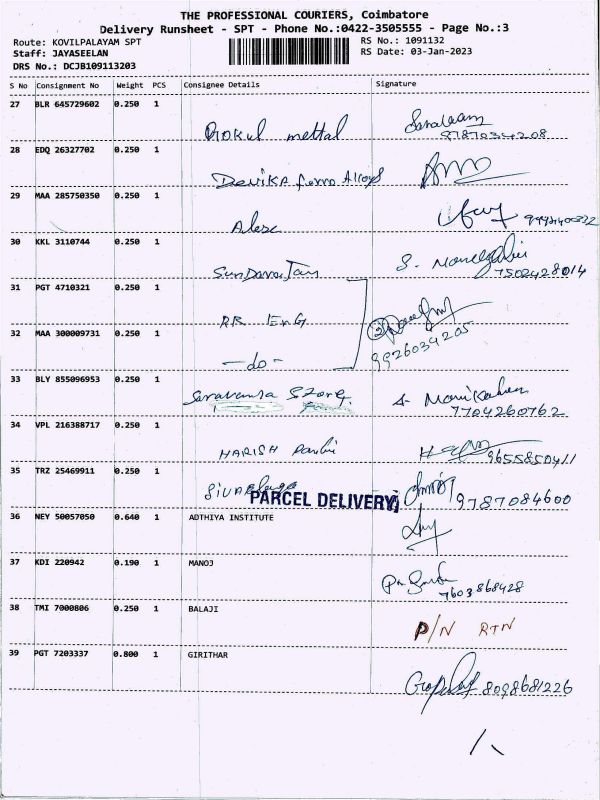 THE PROFESSIONAL COURIERS, Coimbatore
Delivery Runsheet - SPT - Phone No.:0422-3505555 - Page No.:3
Route: KOVILPALAYAM SPT
RS No.: 1091132
Staff: JAYASEELAN
RS Date: 03-Jan-2023
DRS No.: DCJB109113203
S No Consignment No Weight PCS Consignee Details Signature
27 BLR 645729602 0.250 1
Gokul mettal
9787034208
28 EDQ 26327702 0.250 1
Devika ferro Alloys
29 MAA 285750350 0.250 1
30 KKL 3110744 0.250 1
7502428014
31 PGT 4710321 0.250 1
RR EnG
32 MAA 300009731 0.250 1
-do-
9926034205
33 BLY 855096953 0.250 1
7704260762
34 VPL 216388717 0.250 1
HARISH
9655850411
35 TRZ 25469911 0.250 1
9787084600
PARCEL DELIVERY
36 NEY 50057050 0.640 1 ADTHIYA INSTITUTE
37 KDI 220942 0.190 1 MANOJ
7603868428
38 TMI 7000806 0.250 1 BALAJI
P/N RTN
39 PGT 7203337 0.800 1 GIRITHAR
8098681226